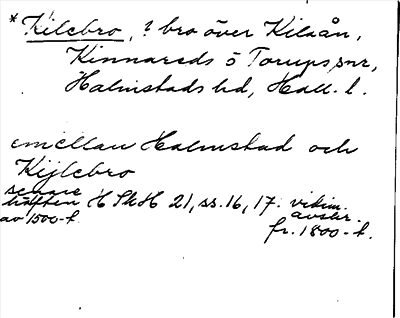 * Kilebro, ? bro över Kilaån,
Kinnareds o Torups snr,
Halmstads hd, Hall. l.
emellan Halmstad och
Kijlebro
senare
hälften HSkH 21, ss. 16, 17. vidim.
av 1500-t. avskr.
fr. 1800-t.